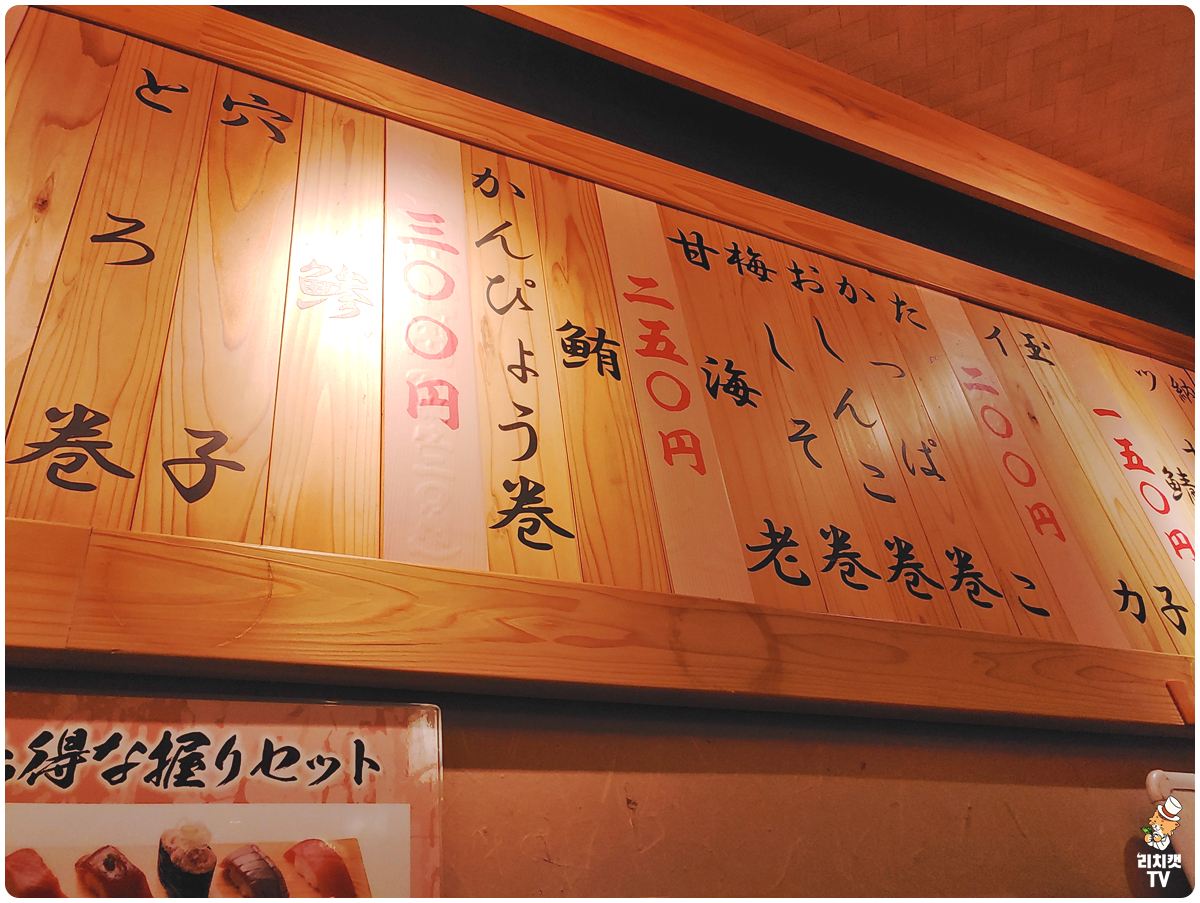 納
鯖
一五〇円
玉子
イカ
二〇〇円
たこ
かっぱ巻
おしんこ巻
梅しそ巻
甘海老
二五〇円
鮪
かんぴょう巻
三〇〇円
鯵
穴子
とろ巻
お得な握りセット
리치캣
TV